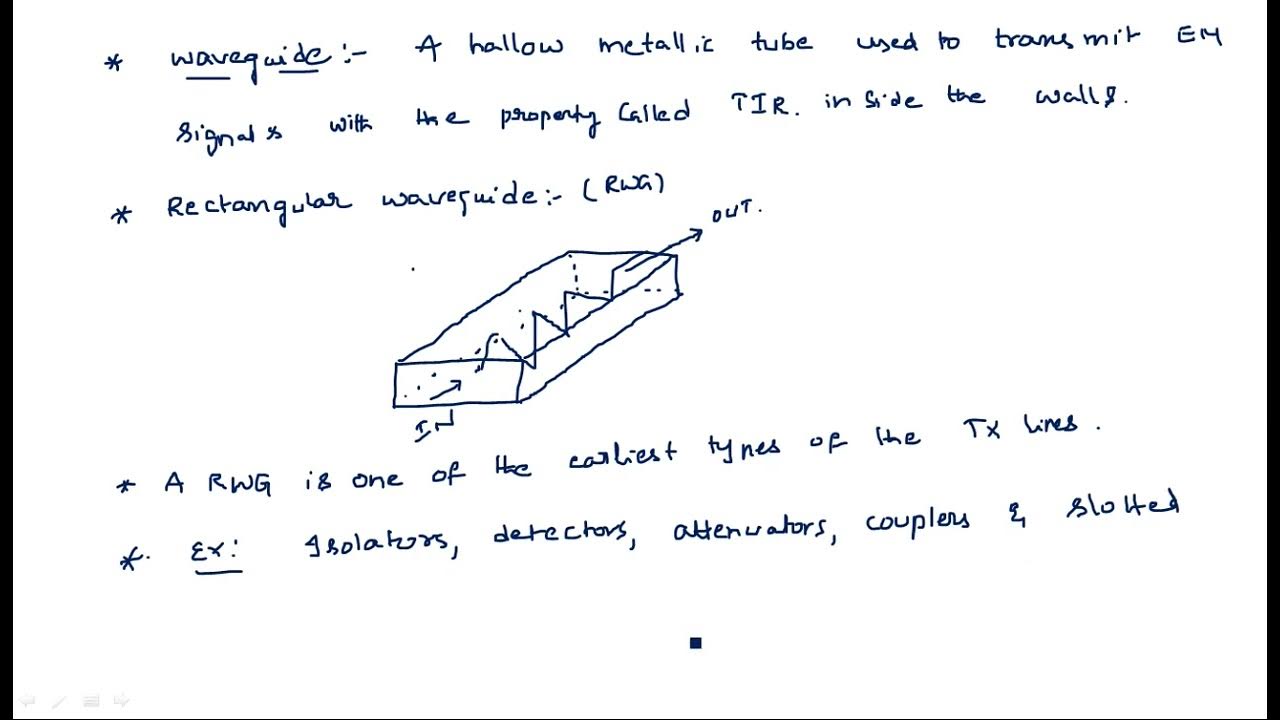 * waveguide :- A hallow metallic tube used to transmit EM
signals with the property called TIR. inside the walls.
* Rectangular waveguide :- (RWG)
OUT.
IN
* A RWG is one of the earliest types of the TX lines.
* Ex: Isolators, detectors, attenuators, couplers & slotted